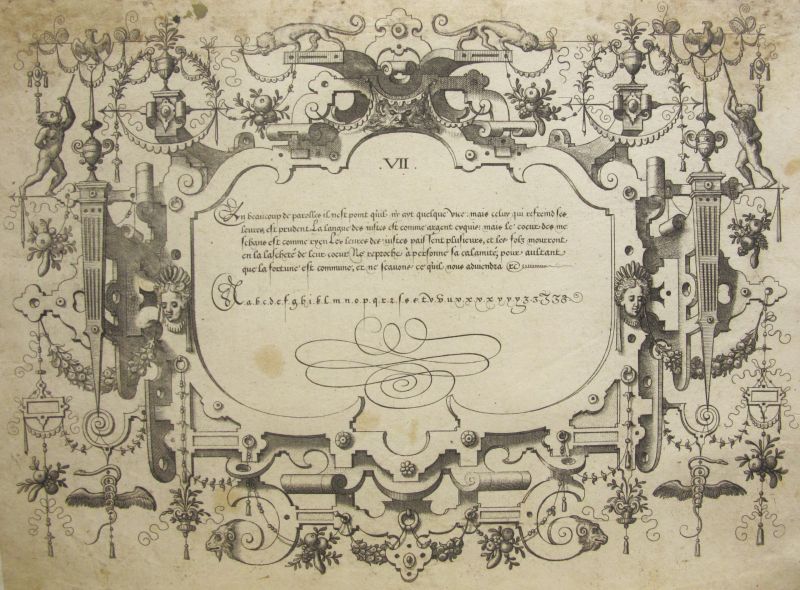 .VII.
En beaucoup de parolles il n'est point qu'il n'y ayt quelque vice: mais celuy qui refreind ses
leures, est prudent. La langue des iustes est comme argent exquis: mais le coeur des me
schans est comme ryen. Les leures des iustes paissent plusieurs, et les folz mourront
en la lascheté de leur coeur. Ne reproche à personne sa calamité, pour aultant
que la fortune est commune, et ne scauons ce qu'il nous aduiendra &c
A a.b.c.d.e.f.g.h.i.k.l.m.n.o.p.q.r.t.s.s.e.t.v.v.u.x.x.x.x.y.y.y.z.z.